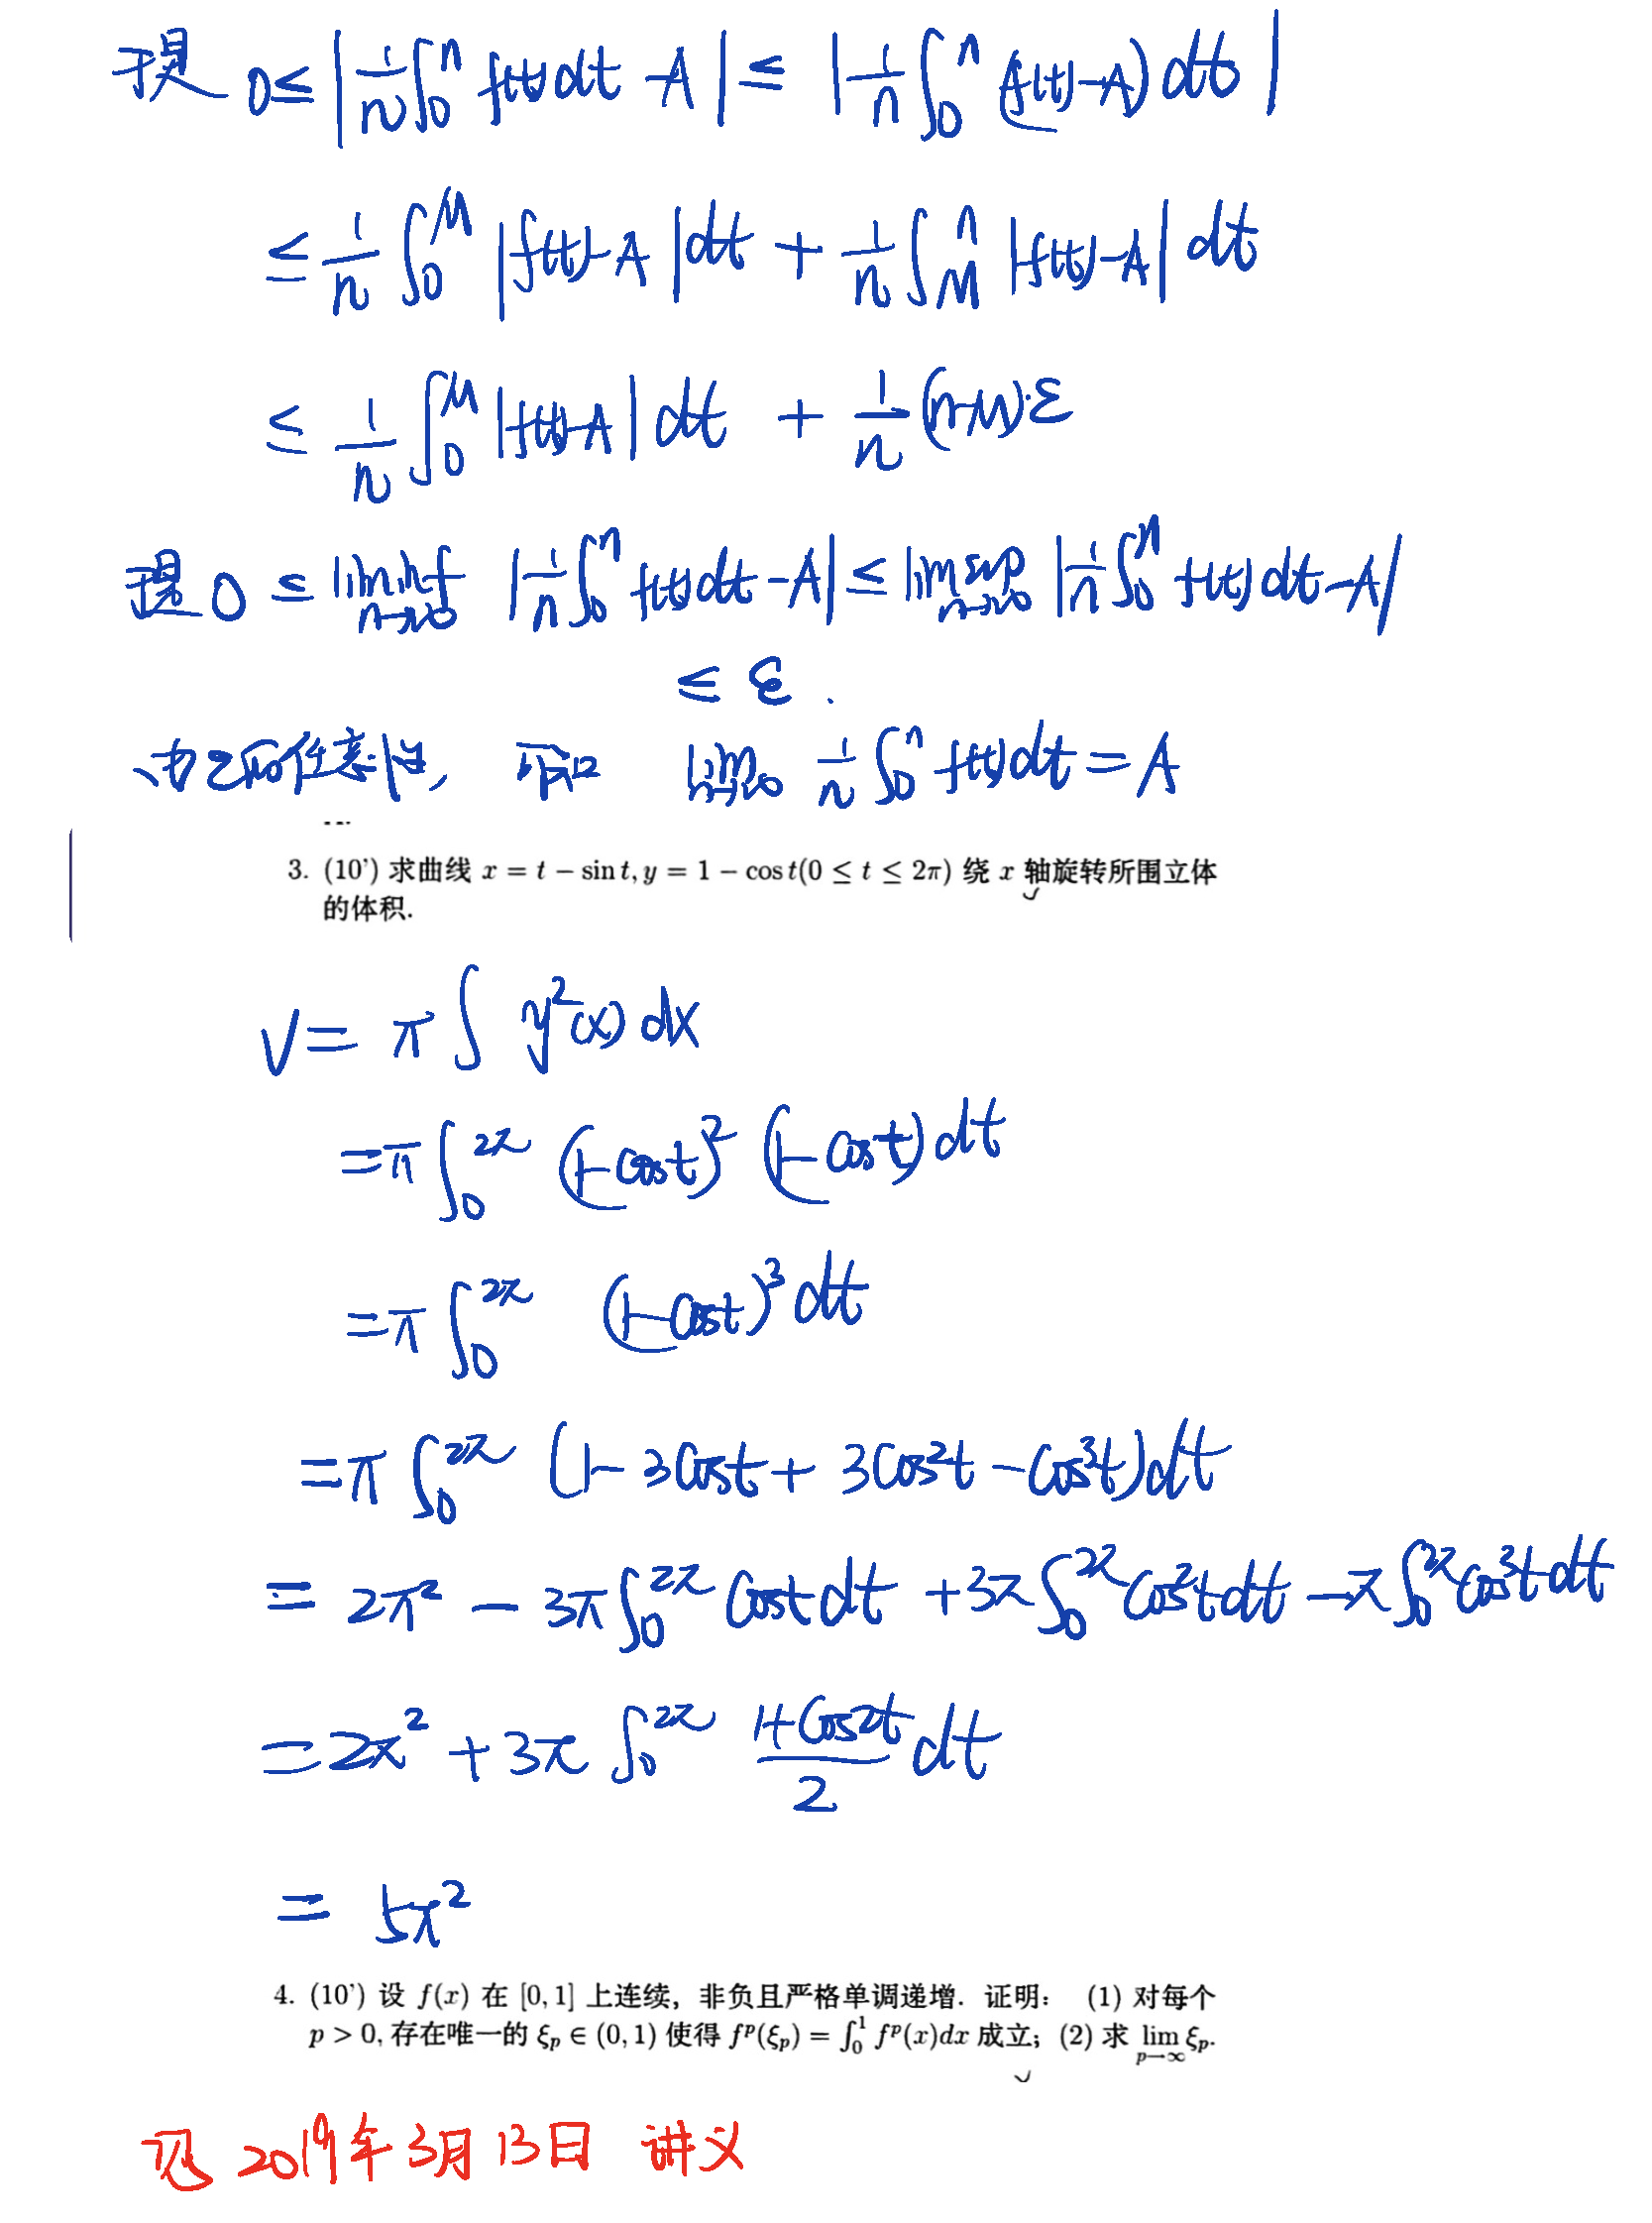 于是 0 ≤ |1/n ∫_0^n f(t)dt - A| ≤ |1/n ∫_0^n (f(t)-A) dt|
≤ 1/n ∫_0^M |f(t)-A| dt + 1/n ∫_M^n |f(t)-A| dt
≤ 1/n ∫_0^M |f(t)-A| dt + 1/n (n-M)·ε
于是 0 ≤ liminf_{n→∞} |1/n ∫_0^n f(t)dt - A| ≤ limsup_{n→∞} |1/n ∫_0^n f(t)dt - A|
≤ ε.
由ε的任意性, 可知 lim_{n→∞} 1/n ∫_0^n f(t)dt = A
3. (10') 求曲线 x = t − sin t, y = 1 − cos t(0 ≤ t ≤ 2π) 绕 x 轴旋转所围立体
的体积.
V = π ∫ y²(x) dx
= π ∫_0^{2π} (1-cost)² (1-cost) dt
= π ∫_0^{2π} (1-cost)³ dt
= π ∫_0^{2π} (1 - 3cost + 3cos²t - cos³t) dt
= 2π² - 3π ∫_0^{2π} cost dt + 3π ∫_0^{2π} cos²t dt - π ∫_0^{2π} cos³t dt
= 2π² + 3π ∫_0^{2π} (1+cos2t)/2 dt
= 5π²
4. (10') 设 f(x) 在 [0, 1] 上连续, 非负且严格单调递增. 证明: (1) 对每个
p > 0, 存在唯一的 ξ_p ∈ (0, 1) 使得 f^p(ξ_p) = ∫_0^1 f^p(x)dx 成立; (2) 求 lim_{p→∞} ξ_p.
见 2019年3月13日 讲义